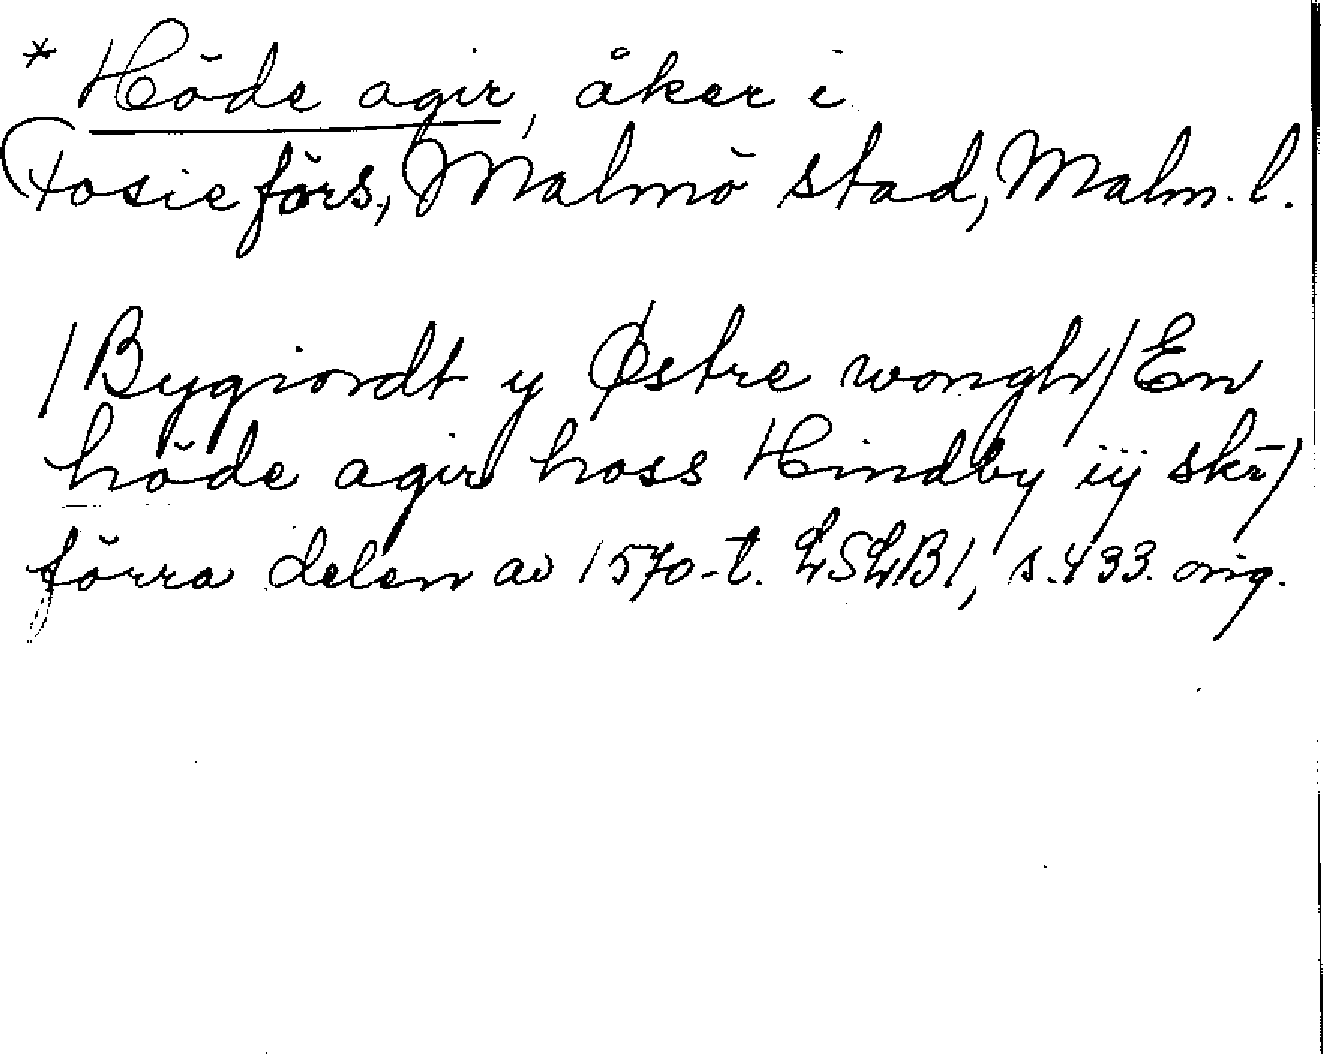 * Höde agir, åker i
Fosie förs., Malmö stad, Malm. l.
/Bygiordt y Østre wongh/ En
höde agir hoss Hindby iij skr/
förra delen av 1570-t. LSLB1, s.433. orig.